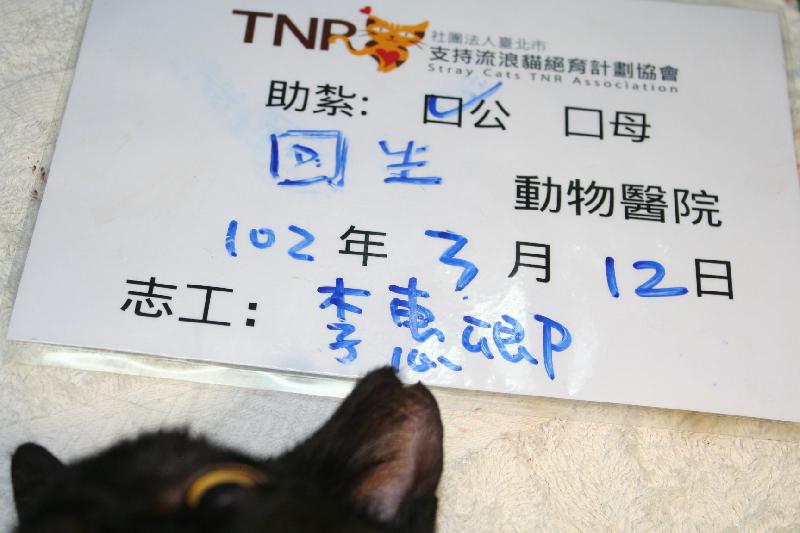 TNR 社團法人臺北市
支持流浪貓絕育計劃協會
Stray Cats TNR Association
助紮: ☑公 □母
回生 動物醫院
102年3月12日
志工: 李惠卿